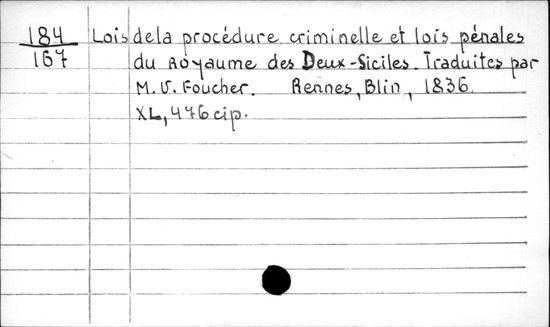 184 Lois de la procédure criminelle et lois pénales
167 du Royaume des Deux-Siciles. Traduites par
M. V. Foucher. Rennes, Blin, 1836.
XL, 476 cip.